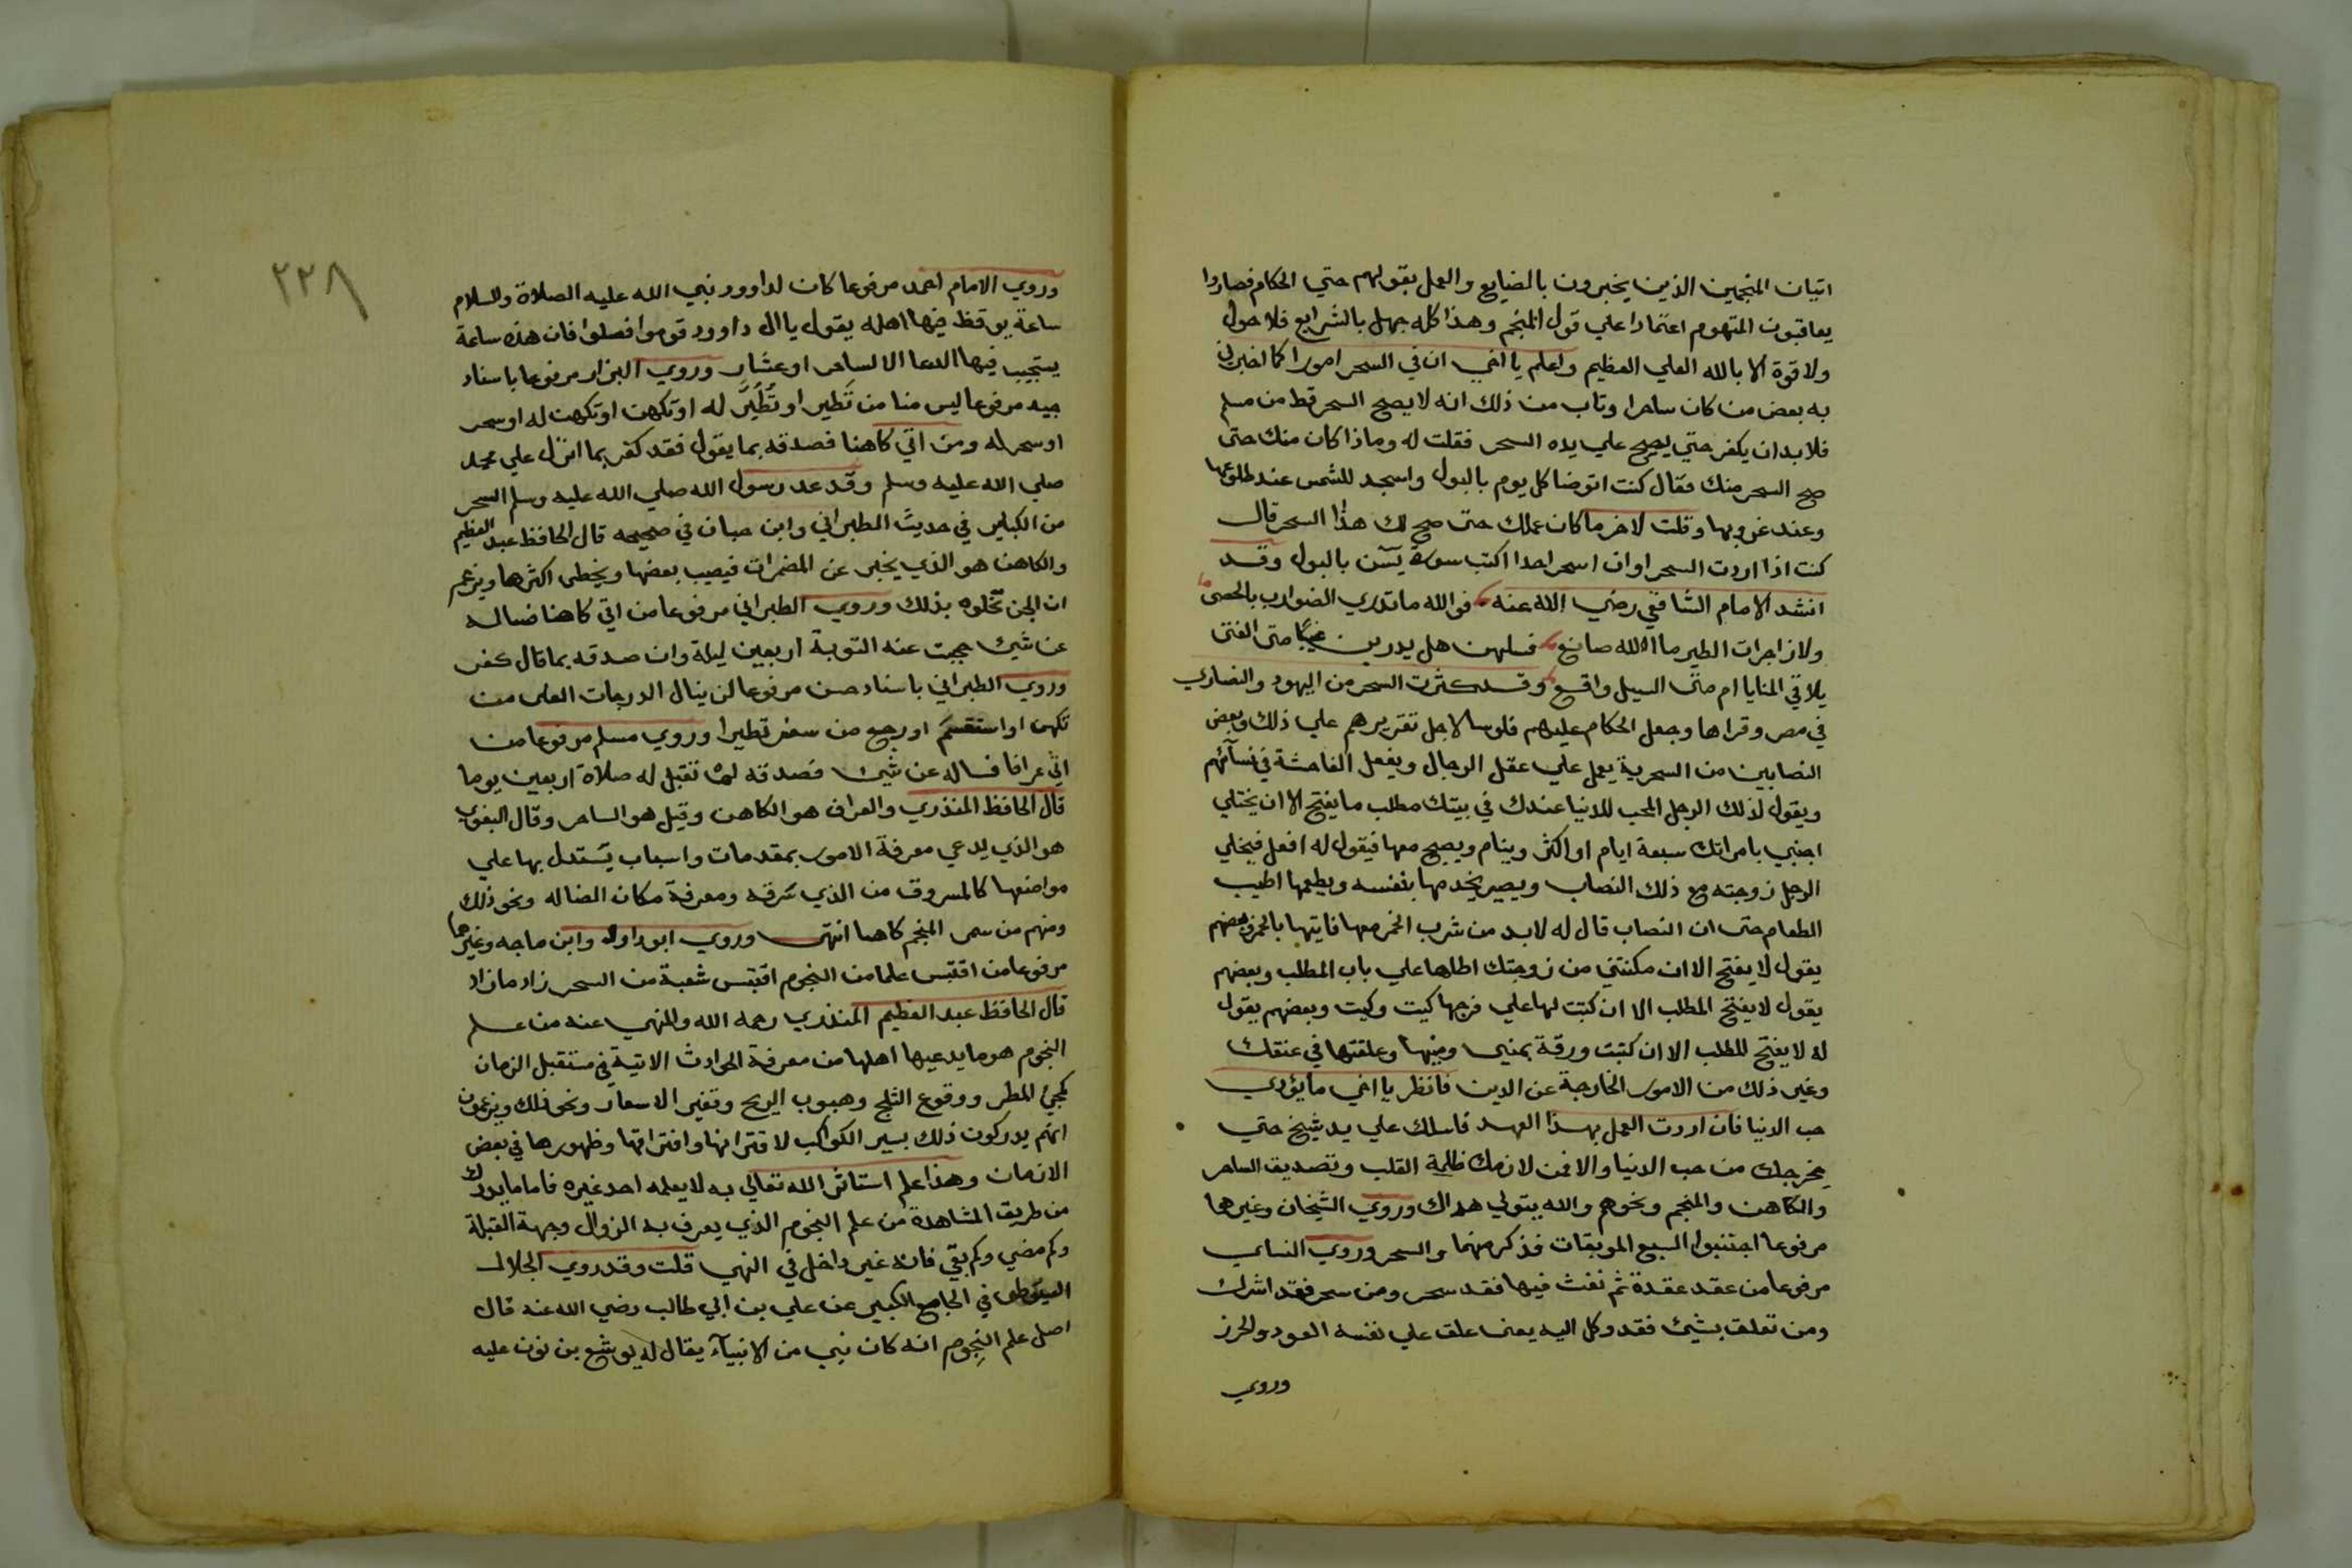 اتيان المنجمين الذين يخبرون بالضايع والعمل بقولهم حتي الحكام فصاروا
يعاقبون المتهوم اعتمادا علي قول المنجم وهذا كله جهل بالشرايع فلا حول
ولا قوة الا بالله العلي العظيم واعلم يا اخي ان في السحر امورا كما اخبرني
به بعض من كان ساحرا وتاب من ذلك انه لا يصح السحر قط من مسلم
فلا بد ان يكفر حتي يصح علي يده السحر فقلت له وماذا كان منك حتى
صح السحر منك فقال كنت اتوضا كل يوم بالبول واسجد للشمس عند طلوعها
وعند غروبها وقلت لاخر ما كان عملك حتى صح لك هذا السحر قال
كنت اذا اردت السحر او ان اسحر احدا اكتب سورة يسٓ بالبول وقد
انشد الامام الشافعي رضي الله عنه فو الله ما تدري الضوارب بالحصى
ولا زاجرات الطير ما الله صانع فسلهن هل يدرين غيبا متى الفتى
يلاقي المنايا ام متى السيل واقع وقد كثرت السحر من اليهود والنصاري
في مصر وقراها وجعل الحكام عليهم فلوسا لاجل تقريرهم علي ذلك وبعض
النصابين من السحرية يعمل علي عقل الرجال ويفعل الفاحشة في نسآئهم
ويقول لذلك الرجل المحب للدنيا عندك في بيتك مطلب ما يفتح الا ان يختلي
اجنبي بامراتك سبعة ايام او اكثر وينام ويصبح معها فيقول له افعل فيخلي
الرجل زوجته مع ذلك النصاب ويصير يخدمها بنفسه ويطعمها اطيب
الطعام حتى ان النصاب قال له لا بد من شرب الخمر معها فاتيها بالخمر وبعضهم
يقول لا يفتح الا ان مكنتني من زوجتك اطاها علي باب المطلب وبعضهم
يقول لا يفتح المطلب الا ان كتبت لها علي فرجها كيت وكيت وبعضهم يقول
له لا يفتح المطلب الا ان كتبت ورقة بمنيي ومنيها وعلقتها في عنقك
وغير ذلك من الامور الخارجة عن الدين فانظر يا اخي ما يؤدي
حب الدنيا فان اردت العمل بهذا العهد فاسلك علي يد شيخ حتي
يخرجك من حب الدنيا والا فمن لازمك ظلمة القلب وتصديق الساحر
والكاهن والمنجم ونحوهم والله يتولي هداك وروي الشيخان وغيرهما
مرفوعا اجتنبوا السبع الموبقات فذكر منها والسحر وروي النساي
مرفوعا من عقد عقدة ثم نفث فيها فقد سحر ومن سحر فقد اشرك
ومن تعلق بشيئ فقد وكل اليه يعني علق علي نفسه العود والحرز
وروي
٢٣٨
وروي الامام احمد مرفوعا كان لداوود نبي الله عليه الصلاة والسلام
ساعة يوقظ فيها اهله يقول يا ال داوود قوموا فصلوا فان هذه ساعة
يستجيب فيها الدعا الا لساحر او عشار وروي البزار مرفوعا باسناد
جيد مرفوعا ليس منا من تَطير او تُطُيِّر له او تكهن او تكهن له او سحر
او سحر له ومن اتي كاهنا فصدقه بما يقول فقد كفر بما انزل علي محمد
صلي الله عليه وسلم وقد عد رسول الله صلي الله عليه وسلم السحر
من الكباير في حديث الطبراني وابن حبان في صحيحه قال الحافظ عبد العظيم
والكاهن هو الذي يخبر عن المضمرات فيصيب بعضها ويخطى اكثرها ويزعم
ان الجن تخلوه بذلك وروي الطبراني مرفوعا من اتي كاهنا فساله
عن شيئ حجبت عنه التوبة اربعين ليلة وان صدقه بما قال كفر
وروي الطبراني باسناد حسن مرفوعا لن ينال الدرجات العلى من
تكهن او استقسم او رجع من سفر تطيرا وروي مسلم مرفوعا من
اتي عرافا فساله عن شيئ فصدقه لم تقبل له صلاة اربعين يوما
قال الحافظ المنذري والعراف هو الكاهن وقيل هو الساحر وقال البغوي
هو الذي يدعي معرفة الامور بمقدمات واسباب يستدل بها علي
مواضعها كالمسروق من الذي سرقه ومعرفة مكان الضاله ونحو ذلك
ومنهم من سمى المنجم كاهنا انتهى وروي ابو داود وابن ماجه وغيرهما
مرفوعا من اقتبس علما من النجوم اقتبس شعبة من السحر زاد ما زاد
قال الحافظ عبد العظيم المنذري رحمه الله والمنهي عنه من علم
النجوم هو ما يدعيها اهلها من معرفة الحوادث الاتية في مستقبل الزمان
كمجيئ المطر ووقوع الثلج وهبوب الريح وتغير الاسعار ونحو ذلك ويزعمون
انهم يدركون ذلك بسير الكواكب لاقترانها وافتراقها وظهورها في بعض
الازمان وهذا علم استاثر الله تعالي به لا يعلمه احد غيره فاما ما يدرك
من طريق المشاهدة من علم النجوم الذي يعرف به الزوال وجهة القبلة
وكم مضي وكم بقي فانه غير داخل في النهي قلت وقد روي الجلال
السيوطى في الجامع الكبير عن علي بن ابي طالب رضي الله عنه قال
اصل علم النجوم انه كان نبي من الانبيآء يقال له يوشع بن نون عليه